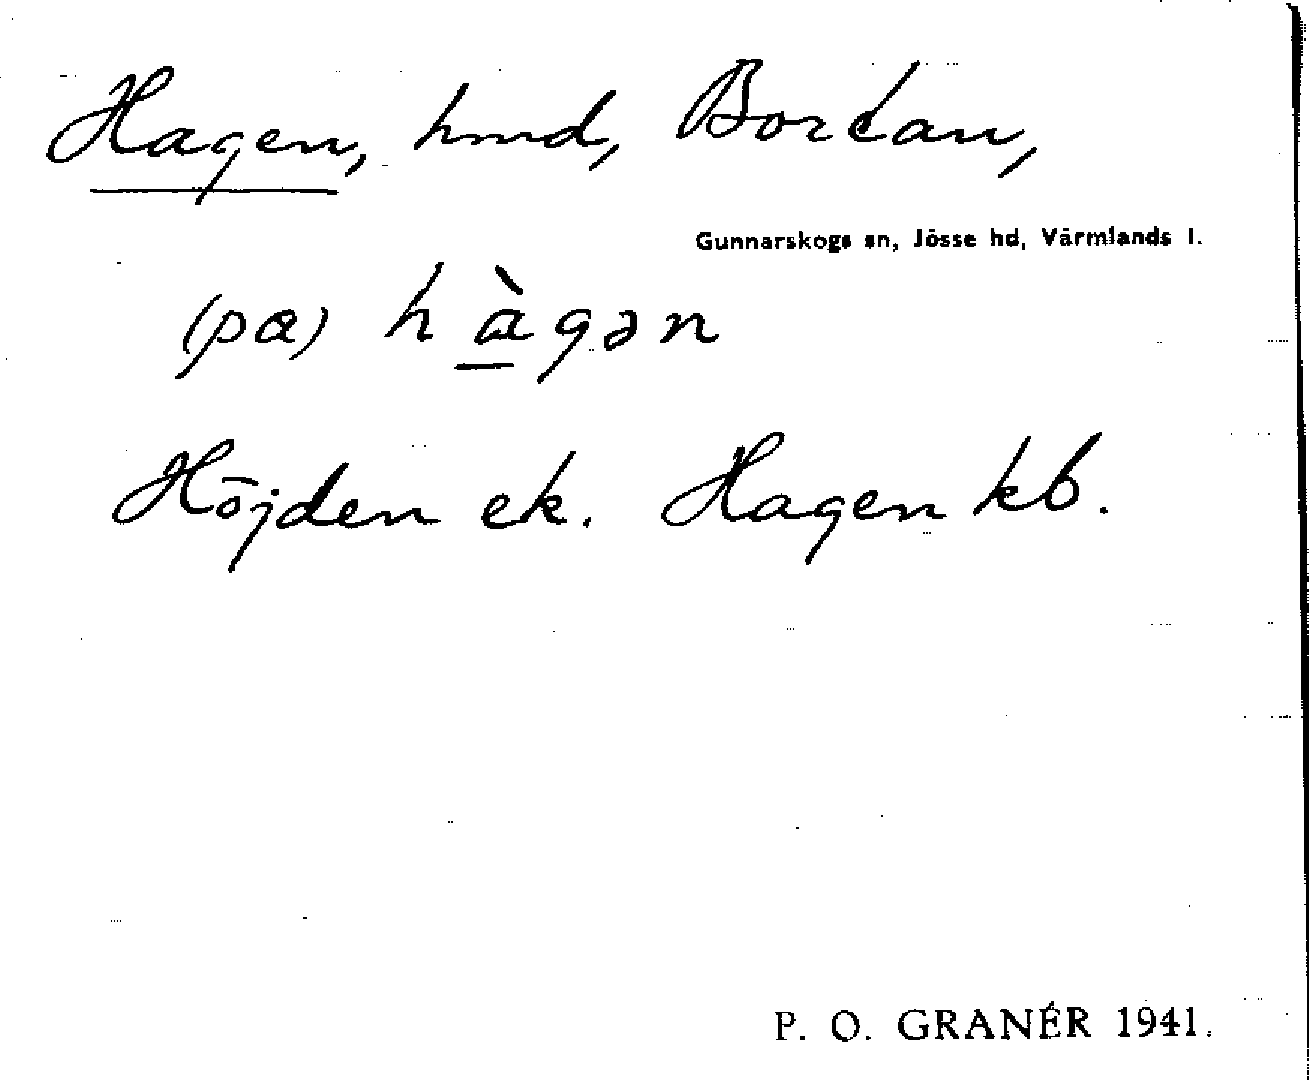 Hagen, hmd, Bortan,
Gunnarskogs sn, Jösse hd, Värmlands l.
(pɑ) hɑ̀gən
Höjden ek. Hagen kb.
P. O. GRANÉR 1941.